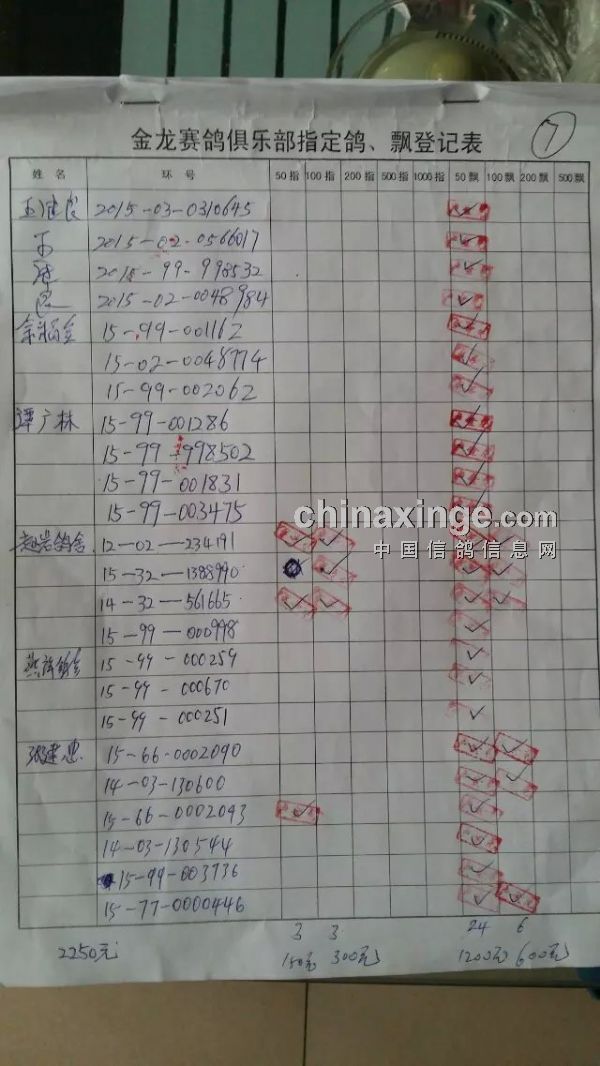 金龙赛鸽俱乐部指定鸽、飘登记表 7
姓名 环号 50指 100指 200指 500指 1000指 50飘 100飘 200飘 500飘
2015-03-0310645
2015-02-0566017
2015-99-998532
2015-02-0048984
15-99-001162
15-02-0048774
15-99-002062
谭广林 15-99-001286
15-99-998502
15-99-001831
15-99-003475
chinaxinge.com
赵岩鸽舍 12-02-234191
中国信鸽信息网
15-32-1388990
14-32-561665
15-99-000998
15-99-000259
15-99-000670
15-99-000251
张建忠 15-66-0002090
14-03-130600
15-66-0002093
14-03-130544
15-99-003736
15-77-0000446
3 3 24 6
2250元 150元 300元 1200元 600元